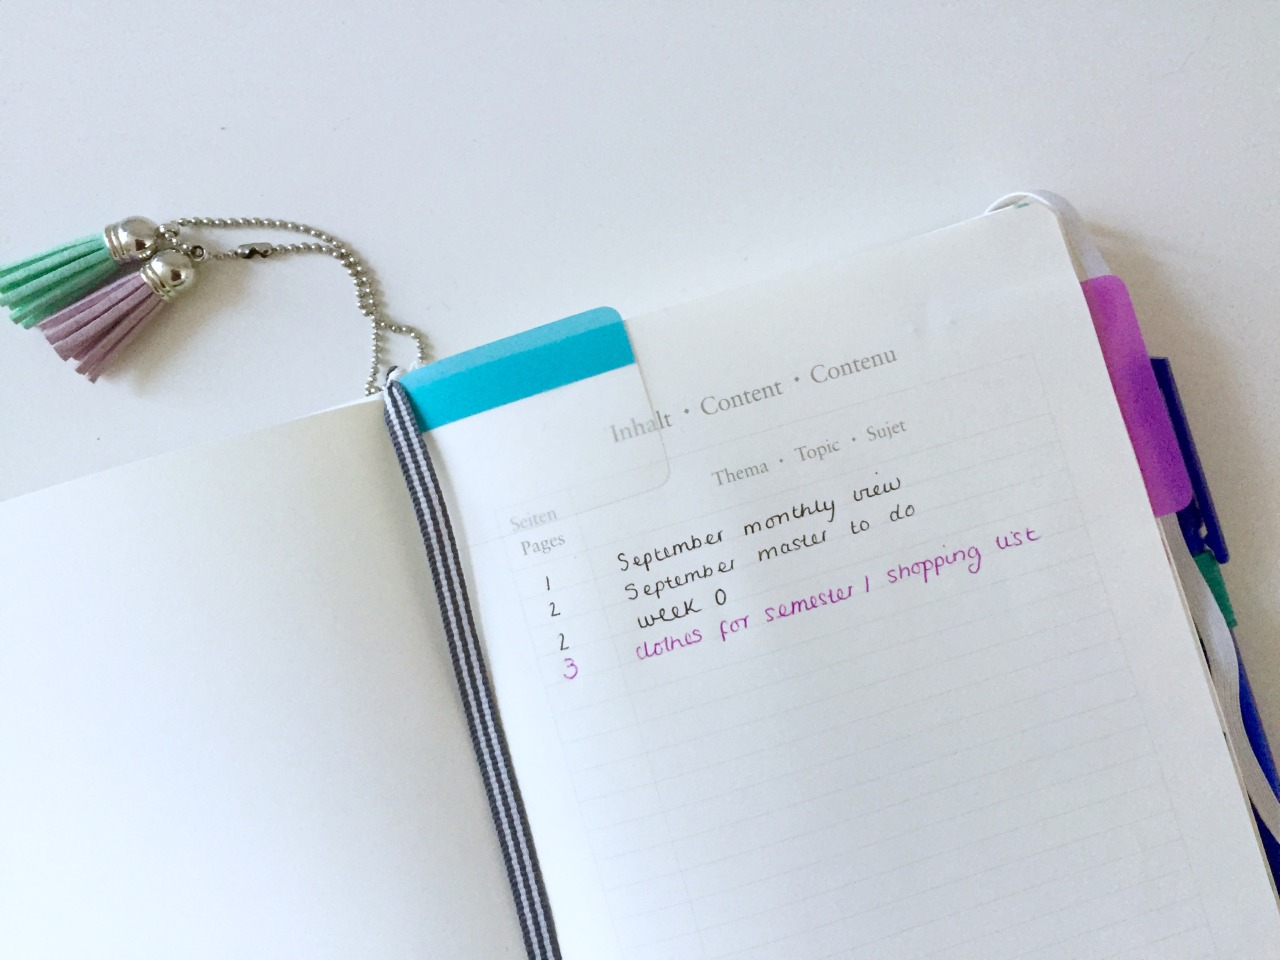 Inhalt · Content · Contenu
Thema · Topic · Sujet
Seiten
Pages
1 September monthly view
2 September master to do
2 week 0
3 clothes for semester 1 shopping list